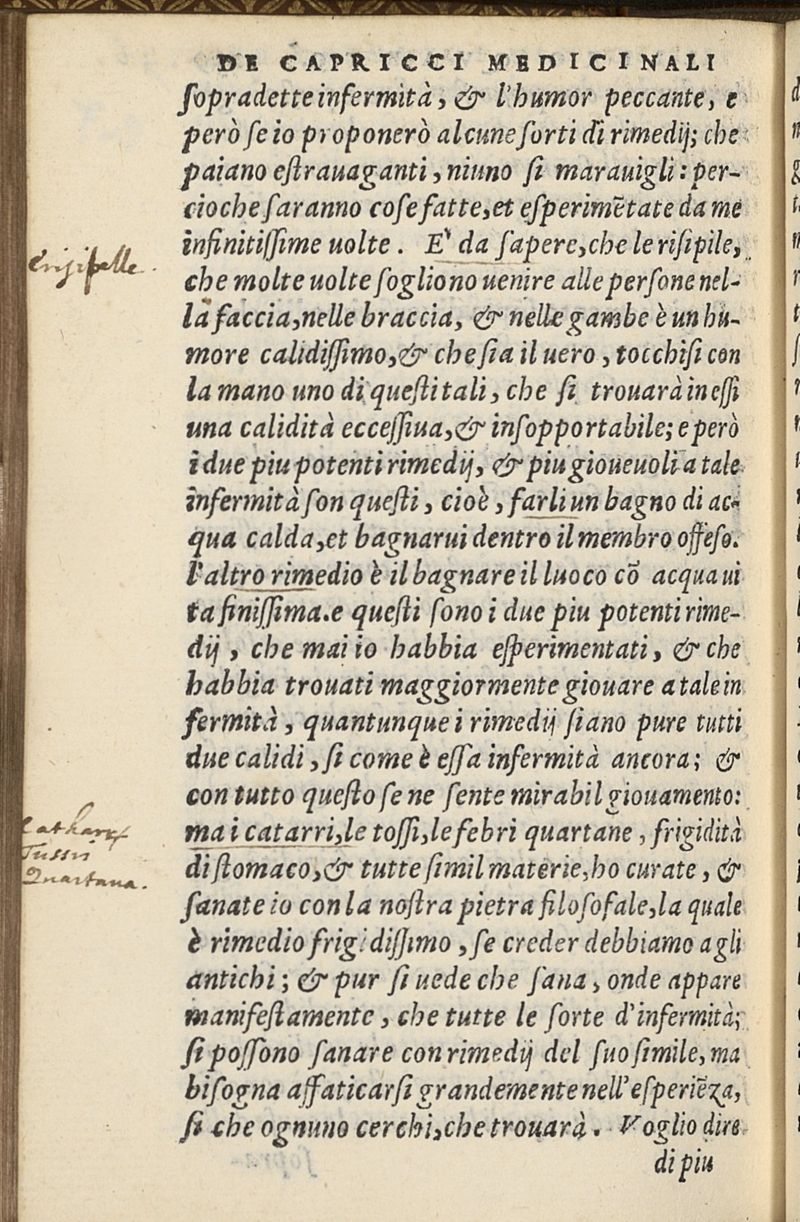 DE CAPRICCI MEDICINALI
sopradette infermità, & l'humor peccante, e
però se io proponerò alcune sorti di rimedij; che
paiano estrauaganti, niuno si marauigli: per-
cioche saranno cose fatte, et esperimẽtate da me
infinitissime uolte. E' da sapere, che le risipile,
Erisipelle.
che molte uolte sogliono uenire alle persone nel-
la faccia, nelle braccia, & nelle gambe è un hu-
more calidissimo, & che sia il uero, tocchisi con
la mano uno di questi tali, che si trouarà in essi
una calidità eccessiua, & insopportabile; e però
i due piu potenti rimedij, & piu gioueuoli a tale
infermità son questi, cioè, farli un bagno di ac-
qua calda, et bagnarui dentro il membro offeso.
l'altro rimedio è il bagnare il luoco cõ acqua ui
ta finissima. e questi sono i due piu potenti rime-
dij, che mai io habbia esperimentati, & che
habbia trouati maggiormente giouare a tale in
fermità, quantunque i rimedij siano pure tutti
due calidi, si come è essa infermità ancora; &
con tutto questo se ne sente mirabil giouamento:
ma i catarri, le tossi, le febri quartane, frigidità
Tussis
Quartana.
di stomaco, & tutte simil materie, ho curate, &
sanate io con la nostra pietra filosofale, la quale
è rimedio frigidissimo, se creder debbiamo agli
antichi; & pur si uede che sana, onde appare
manifestamente, che tutte le sorte d'infermità;
si possono sanare con rimedij del suo simile, ma
bisogna affaticarsi grandemente nell'esperiẽza,
si che ognuno cerchi, che trouarà. Voglio dire
di piu